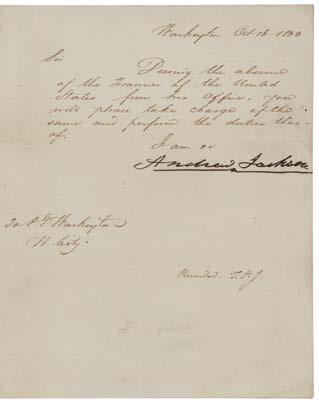 Washington Oct 16 1833
Sir
During the absence
of the Treasurer of the United
States from his Office, you
will please take charge of the
same and perform the duties there-
of.
I am &c
Andrew Jackson
To P. G. Washington
W. City.
Recorded.